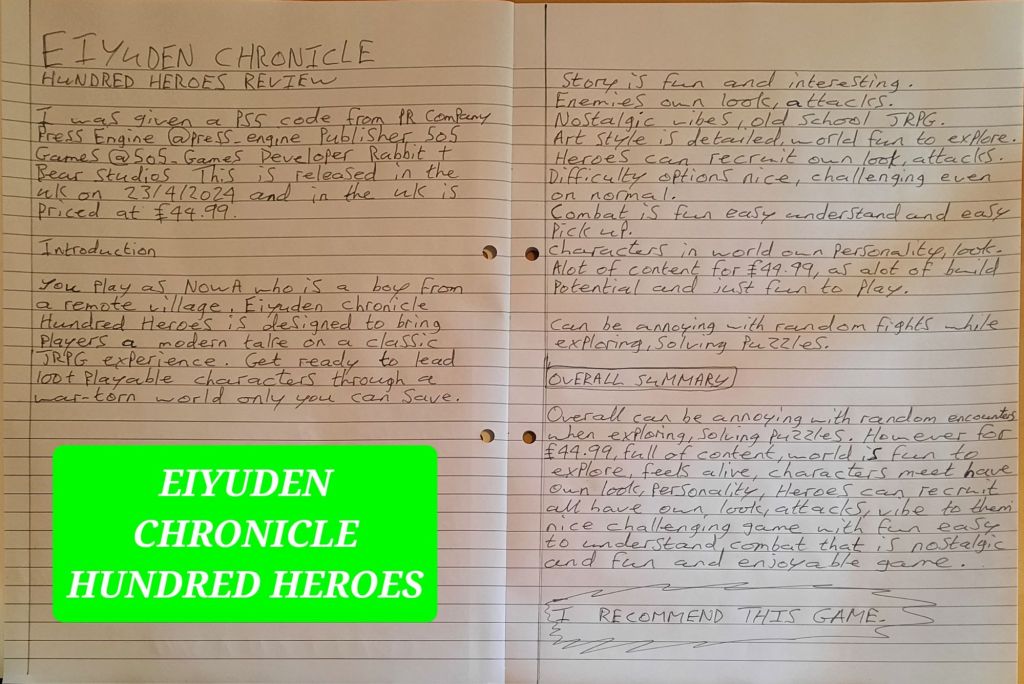 EIYUDEN CHRONICLE
HUNDRED HEROES REVIEW
I was given a PS5 code from PR Company
Press Engine @press_engine Publisher 505
Games @505_Games Developer Rabbit +
Bear Studios This is released in the
uk on 23/4/2024 and in the uk is
Priced at £44.99.
Introduction
You Play as NOWA who is a boy from
a remote village. Eiyuden chronicle
Hundred Heroes is designed to bring
Players a modern take on a classic
JRPG experience. Get ready to lead
100+ Playable characters through a
war-torn world only you can save.
EIYUDEN
CHRONICLE
HUNDRED HEROES
Story is fun and interesting.
Enemies own look, attacks.
Nostalgic vibes, old School JRPG.
Art style is detailed, world fun to explore.
Heroes can recruit own look, attacks.
Difficulty options nice, challenging even
on normal.
Combat is fun easy understand and easy
Pick up.
characters in world own Personality, look.
Alot of content for £44.99, as alot of build
Potential and just fun to Play.
can be annoying with random fights while
exploring, Solving Puzzles.
OVERALL SUMMARY
Overall can be annoying with random encounters
when exploring, Solving Puzzles. However for
£44.99, full of content, world is fun to
explore, feels alive, characters meet have
own look, Personality, Heroes can recruit
all have own, look, attacks, vibe to them
nice challenging game with fun easy
to understand combat that is nostalgic
and fun and enjoyable game.
I RECOMMEND THIS GAME.